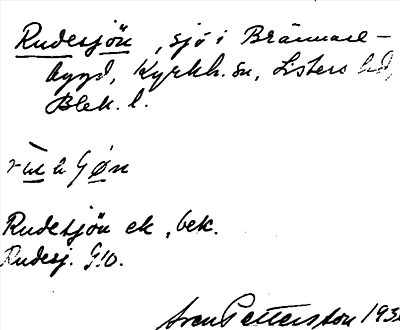 Rudesjön, sjö i Brännare-
bygd, Kyrkh. sn, Listers hd,
Blek. l.
Rudesjön ek, bek.
Rudesj. G10.
Sven Pettersson